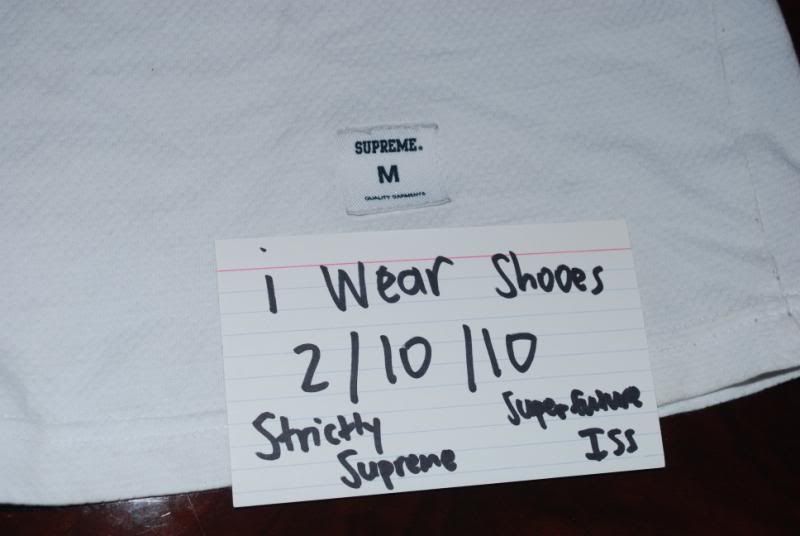 SUPREME.
M
QUALITY GARMENTS
i Wear Shooes
2/10/10
Strictly Supreme
Superfuture
ISS